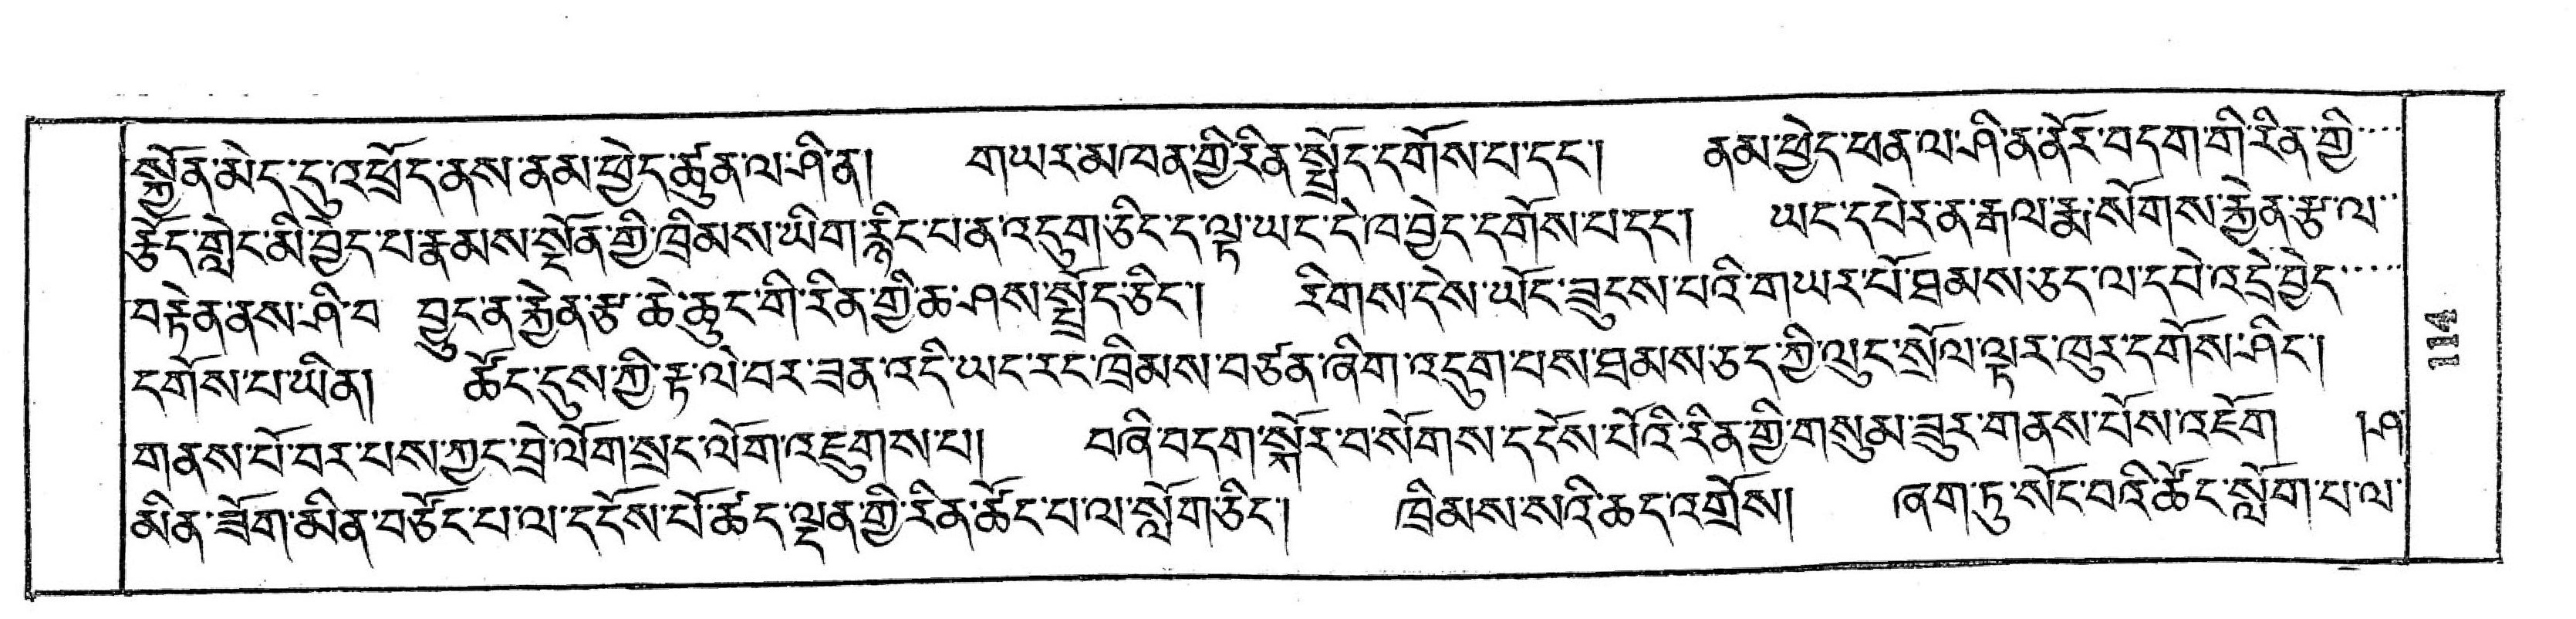 སྐྱོན་མེད་དུ་འཕྲོད་ནས་ནམ་ཕྱེད་ཚུན་ལ་ཤི་ན།  གཡར་མཁན་གྱི་རིན་སྤྲོད་དགོས་པ་དང་།  ནམ་ཕྱེད་ཕན་ལ་ཤི་ན་ནོར་བདག་གི་རིན་གྱི་....
རྩོད་གླེང་མི་བྱེད་པ་རྣམས་སྔོན་གྱི་ཁྲིམས་ཡིག་རྙིང་པ་ན་འདུག་ཅིང་ད་ལྟ་ཡང་དེ་ཁ་བྱེད་དགོས་པ་དང་།  ཡང་དཔེར་ན་རྒལ་རྨ་སོགས་རྐྱེན་རྩ་ལ་..
བརྟེན་ནས་ཤི་བ བྱུང་ན་རྐྱེན་རྩ་ཆེ་ཆུང་གི་རིན་གྱི་ཆ་ཤས་སྤྲོད་ཅིང་།  རིགས་དེས་ཡོང་ཟུངས་པའི་གཡར་པོ་ཐམས་ཅད་ལ་དཔེ་འདྲེ་བྱེད་....
དགོས་པ་ཡིན།  ཚོང་དུས་ཀྱི་རྟ་ལེ་བར་ཟན་འདི་ཡང་རང་ཁྲིམས་བཙན་ཞིག་འདུག་པས་ཐམས་ཅད་ཀྱི་ལུང་སྲོལ་ལྟར་ཁུར་དགོས་ཤིང་།
གནས་པོ་བར་པས་ཀྱང་བྲེ་ལོག་སྲང་ལོག་འཇུགས་པ།  བཞི་བདག་སྐོར་བ་སོགས་དངོས་པོའི་རིན་གྱི་གསུམ་ཟུར་གནས་པོས་འཇོག  །ཤ་
མིན་ཟོག་མིན་བཙོང་པ་ལ་དངོས་པོ་ཚད་ལྡན་གྱི་རིན་ཚོང་པ་ལ་སློག་ཅིང་།  ཁྲིམས་སའི་ཆད་འགྲོས།  ཞག་ཏུ་སོང་བའི་ཚོང་སློག་པ་ལ་
114